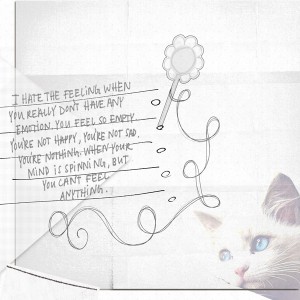 I HATE THE FEELING WHEN
YOU REALLY DON'T HAVE ANY
EMOTION. YOU FEEL SO EMPTY.
YOU'RE NOT HAPPY, YOU'RE NOT SAD.
YOU'RE NOTHING. WHEN YOUR
MIND IS SPINNING, BUT
YOU CAN'T FEEL
ANYTHING.